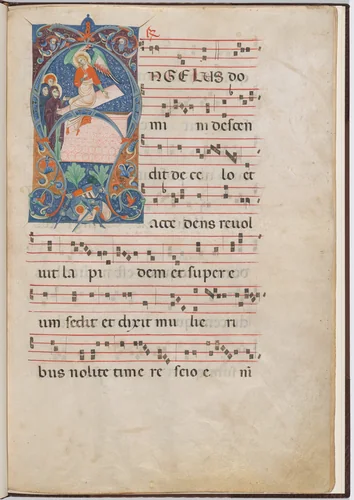 R
NGELUS do
mi ni descen
dit de ce lo et
acce dens revol
uit la pi dem et super e
um sedit et dixit mu lie ri
bus nolite time re scio e ni